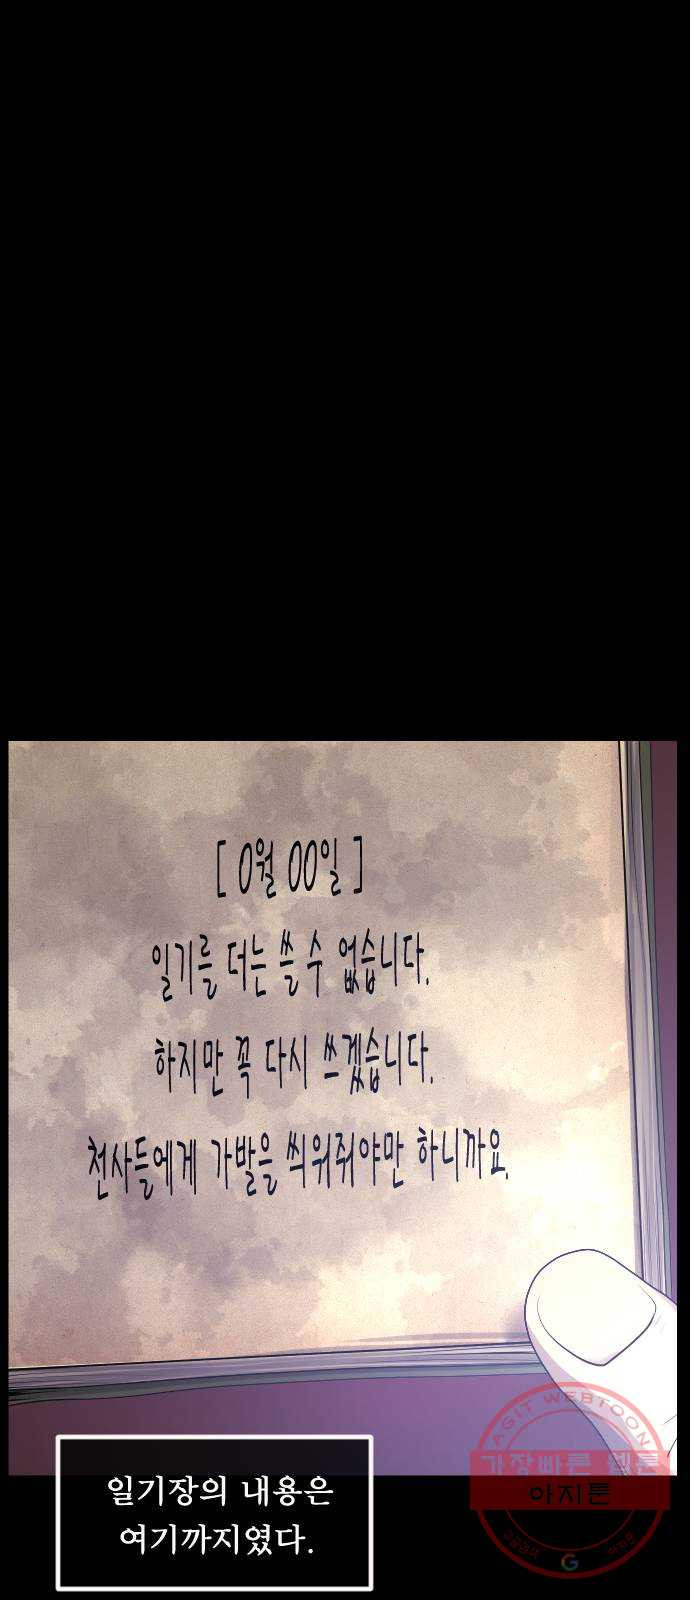 [ 0월 00일 ]
일기를 더는 쓸 수 없습니다.
하지만 꼭 다시 쓰겠습니다.
천사들에게 가발을 씌워줘야만 하니까요.
일기장의 내용은
여기까지였다.
AGIT WEBTOON
가장빠른 웹툰
아지툰
G